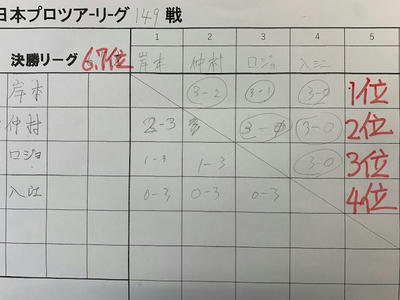 日本プロツアーリーグ 149 戦
1 2 3 4 5
決勝リーグ 6,7位 岸本 仲村 ロジョ 入江
岸本 3-2 3-1 3-0 1位
仲村 2-3 3-0 2位
ロジョ 1-3 1-3 3-0 3位
入江 0-3 0-3 0-3 4位